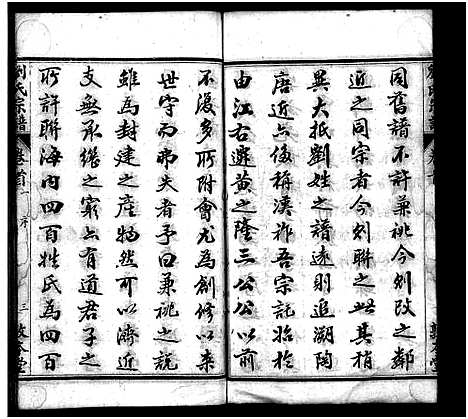 同舊譜不許兼祧今列改之鄰
近之同宗者今列聯之此其稍
異大抵劉姓之譜遠則追溯陶
唐近亦侈稱漢祚吾宗託始於
由江右遷黃之隆三公公以前
不復多所附會尤為創修以來
世守而弗失者予曰兼祧之說
雖為封建之產物然可以濟近
支無承繼之窮亦有道君子之
所許聯海內四百姓氏為四百
劉氏宗譜
卷首
序
三